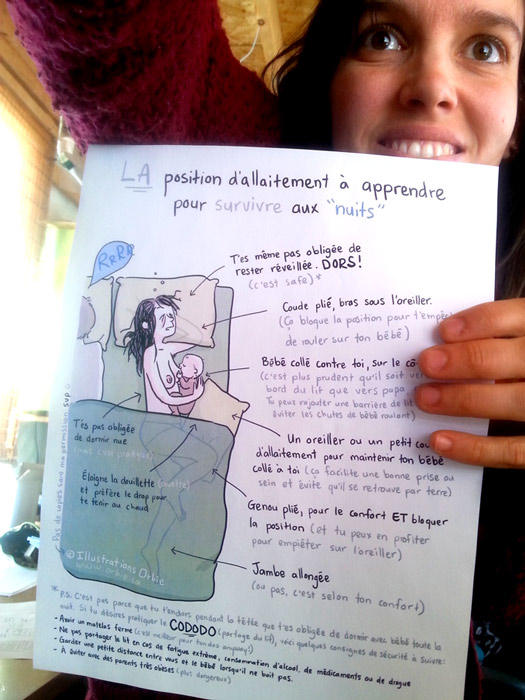 LA position d'allaitement à apprendre
pour survivre aux "nuits"
RRRR
T'es même pas obligée de
rester réveillée. DORS!
(c'est safe)*
Coude plié, bras sous l'oreiller.
(Ça bloque la position pour t'empê
de rouler sur ton bébé)
Bébé collé contre toi, sur le cô
(c'est plus prudent qu'il soit ver
bord du lit que vers papa
Tu peux rajouter une barrière de lit
éviter les chutes de bébé roulant)
Un oreiller ou un petit cou
d'allaitement pour maintenir ton bébé
collé à toi (ça facilite une bonne prise au
sein et évite qu'il se retrouve par terre)
T'es pas obligée
de dormir nue
(mais c'est pratique)
Éloigne la douillette (couette)
et préfère le drap pour
te tenir au chaud
Genou plié, pour le confort ET bloquer
la position (et tu peux en profiter
pour empiéter sur l'oreiller)
Jambe allongée
(ou pas, c'est selon ton confort)
Pas de copies sans ma permission svp
© Illustrations Orbie
www.orbie.ca
* P.S. C'est pas parce que tu t'endors pendant la tétée que t'es obligée de dormir avec bébé toute la
nuit. Si tu désires pratiquer le CODODO (partage du lit), voici quelques consignes de sécurité à suivre:
- Avoir un matelas ferme (c'est meilleur pour ton dos anyway!)
- Ne pas partager le lit en cas de fatigue extrême, consommation d'alcool, de médicaments ou de drogue
- Garder une petite distance entre vous et le bébé lorsqu'il ne boit pas.
- À éviter avec des parents très obèses (plus dangereux)